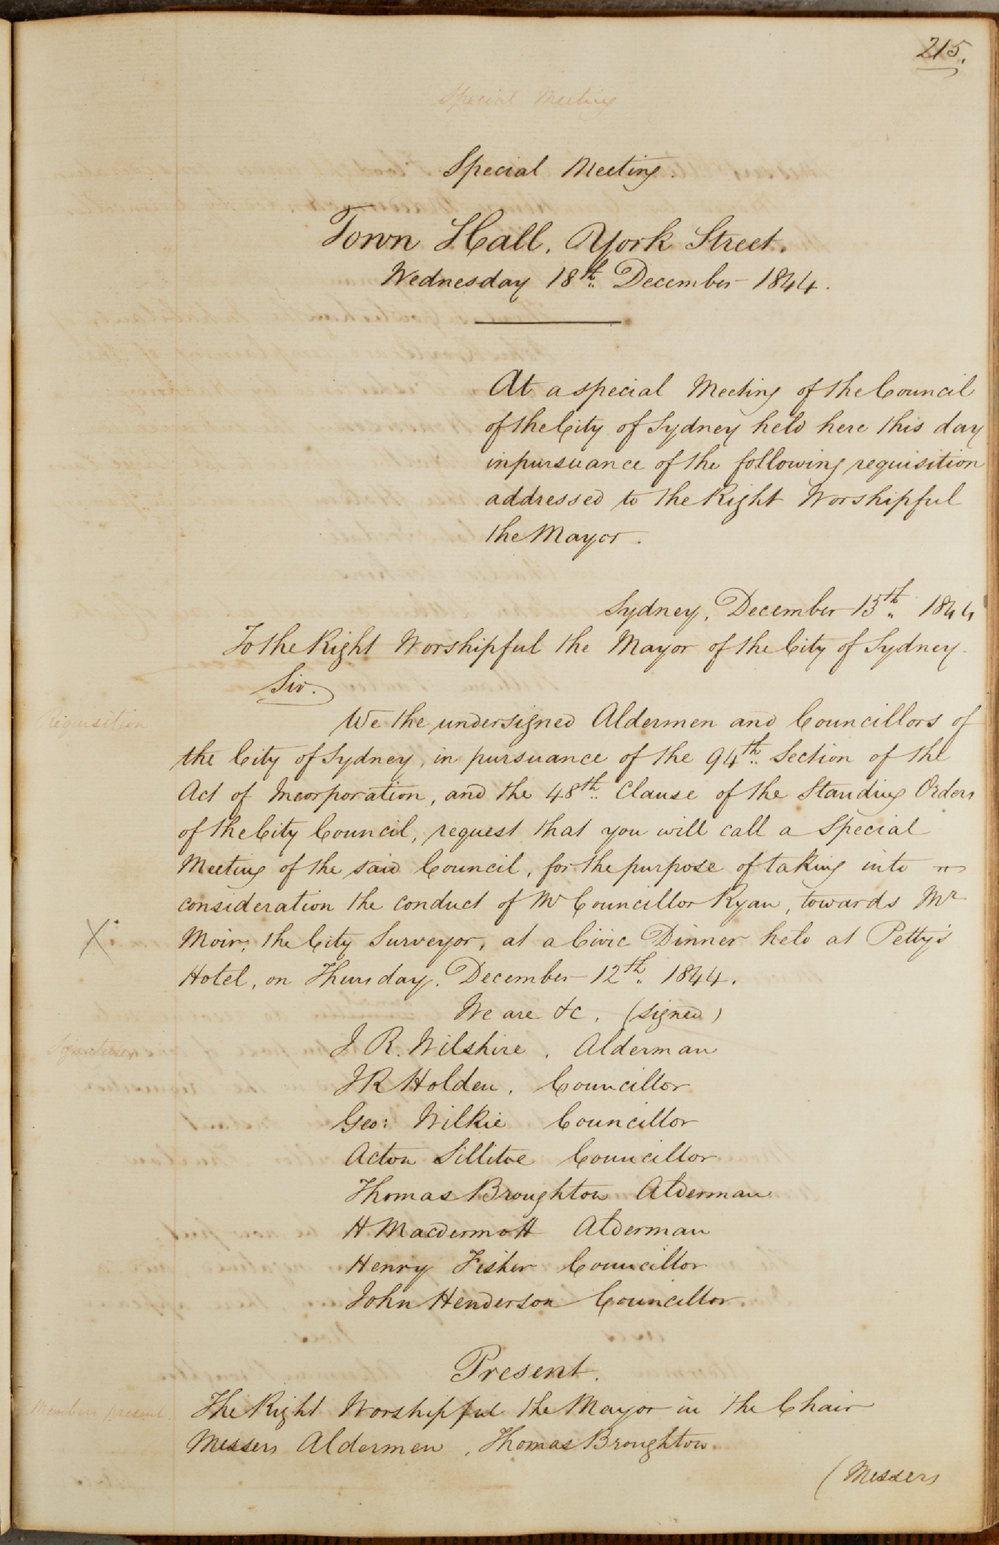 215.
Special Meeting
Special Meeting.
Town Hall, York Street.
Wednesday 18th. December 1844.
At a special Meeting of the Council
of the City of Sydney held here this day
in pursuance of the following requisition
addressed to the Right Worshipful
the Mayor.
Sydney, December 15th. 1844
To the Right Worshipful the Mayor of the City of Sydney.
Sir.
Requisition
We the undersigned Aldermen and Councillors of
the City of Sydney, in pursuance of the 94th. Section of the
Act of Incorporation, and the 48th. Clause of the Standing Orders
of the City Council, request that you will call a Special
Meeting of the said Council, for the purpose of taking into
consideration the conduct of Mr Councillor Ryan, towards Mr
X
Moir, the City Surveyor, at a Civic Dinner held at Petty's
Hotel, on Thursday, December 12th. 1844.
We are &c. (signed)
J. R. Wilshire, Alderman
J R Holden, Councillor
Geo: Wilkie Councillor
Acton Sillitoe Councillor
Thomas Broughton Alderman
H Macdermott Alderman
Henry Fisher Councillor
John Henderson Councillor
Present.
Members present
The Right Worshipful the Mayor in the Chair
Messers Aldermen, Thomas Broughton
(Messers